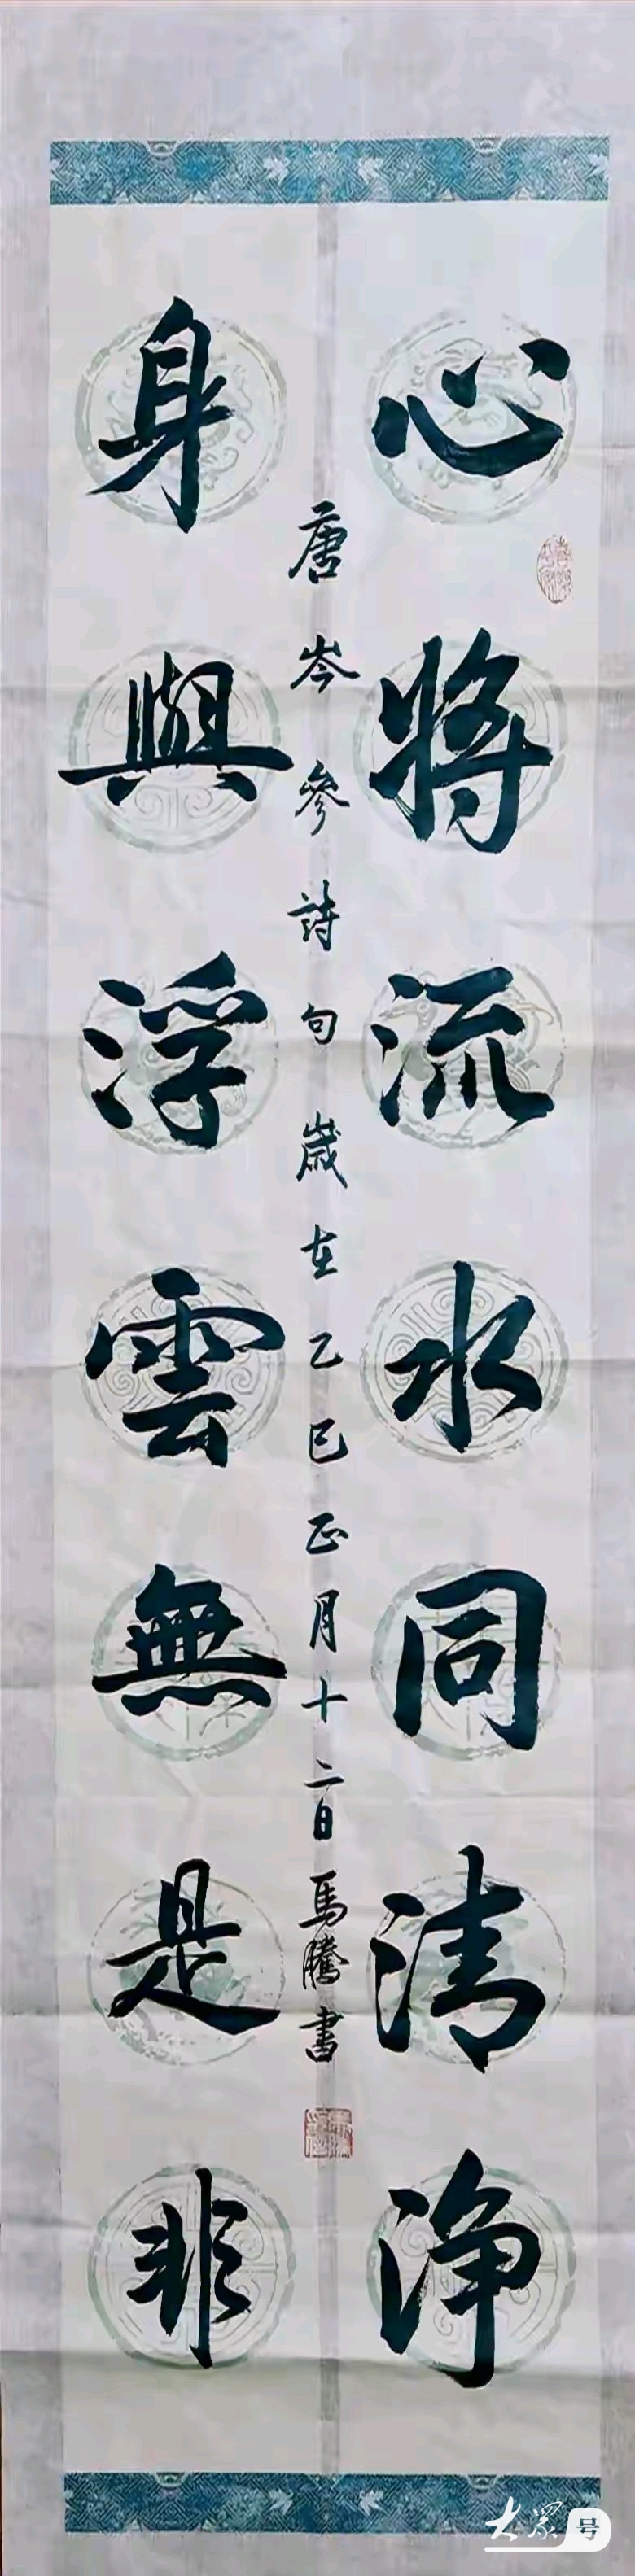 心將流水同清浄
身與浮雲無是非
唐岑參詩句歲在乙巳正月十二日馬騰書
大众号